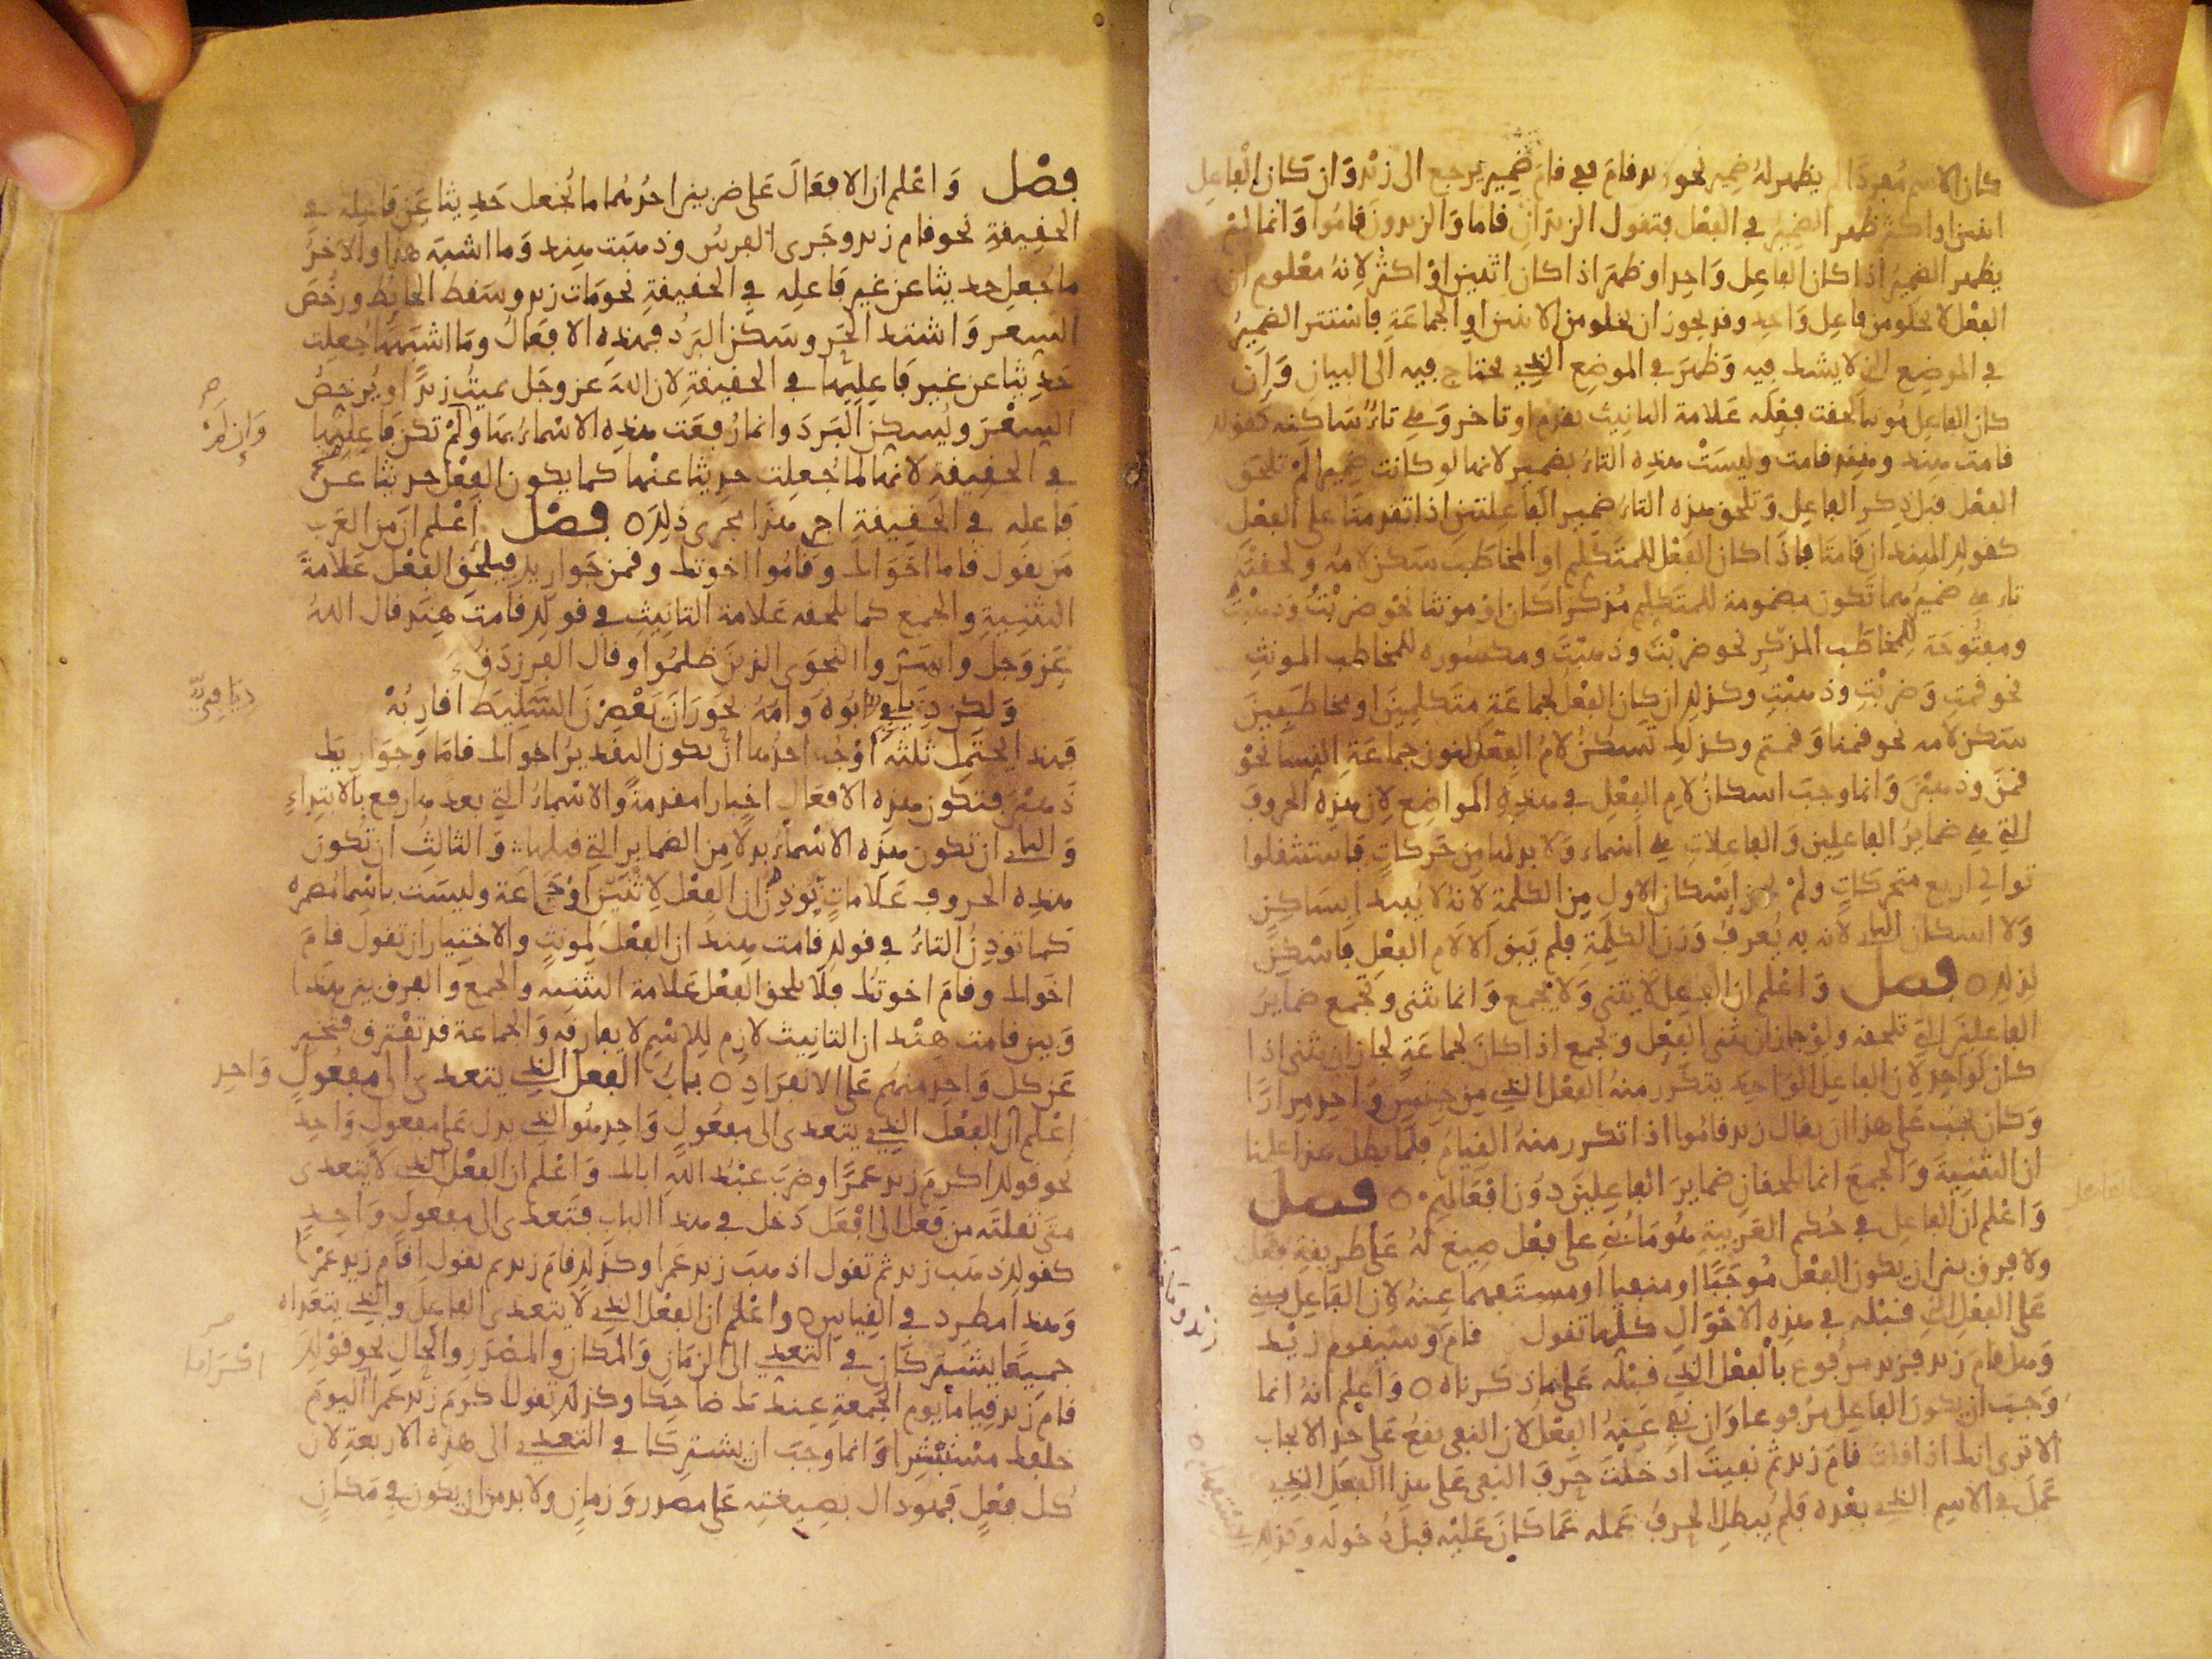 كان الاسم مفردا لم يظهر له ضمير نحو زيد قام ففي قام ضمير يرجع الى زيد وان كان الفاعل
اثنين او اكثر ظهر الضمير في الفعل فتقول الزيدان قاما والزيدون قاموا وانما لم
يظهر الضمير اذا كان الفاعل واحدا وظهر اذا كان اثنين او اكثر لانه معلوم ان
الفعل لا يخلو من فاعل واحد وقد يجوز ان يخلو من الاثنين او الجماعة فاستتر الضمير
في الموضع الذي لا يشك فيه وظهر في الموضع الذي يحتاج فيه الى البيان وان
كان الفاعل مونثا لحقت فعله علامة التانيث تقدم او تاخر وهي تاء ساكنه كقولك
قامت هند وهند قامت وليست هذه التاء بضمير لانها لو كانت ضميرا لم تلحق
الفعل قبل ذكر الفاعل وتلحق هذه التاء ضمير الفاعلتين اذا تقدمتا على الفعل
كقولك الهندان قامتا فاذا كان الفعل للمتكلم او المخاطب سكن لامه ولحقته
تاء هي ضميرهما تكون مضمومة للمتكلم مذكرا كان او مونثا نحو ضربت وذهبت
ومفتوحة للمخاطب المذكر نحو ضربت وذهبت ومكسوره للمخاطب المونث
نحو قمت وضربت وذهبت وكذلك ان كان الفعل لجماعة متكلمين او مخاطبين
سكن لامه نحو قمنا وقمتم وكذلك تسكن لام الفعل لنون جماعة النسا نحو
قمن وذهبن وانما وجب اسكان لام الفعل في هذه المواضع لان هذه الحروف
التي هي ضماير الفاعلين والفاعلات هي اسماء ولا بد لها من حركات فاستثقلوا
توالي اربع متحركات ولم يجز اسكان الاول من الكلمة لانه لا يبتدا بساكن
ولا اسكان الثاني لانه به يعرف وزن الكلمة فلم يبق الا لام الفعل فاسكن
لذلك ٥ فصل واعلم ان الفعل لا يثنى ولا يجمع وانما تثنى وتجمع ضماير
الفاعلين التي تلحقه ولو جاز ان يثنى الفعل ويجمع اذا كان لجماعة لجاز ان يثنى اذا
كان لواحد لان الفاعل الواحد يتكرر منه الفعل الذي من جنس واحد مرارا
وكان يجب على هذا ان يقال زيد قاموا اذا تكرر منه القيام فلما بطل هذا علمنا
ان التثنية والجمع انما يلحقان ضماير الفاعلين دون افعالهم ٥ فصل
واعلم ان الفاعل في حكم العربية هو ما بني على فعل صيغ له على طريقة فعل
ولا فرق بين ان يكون الفعل موجبا او منفيا او مستفهما عنه لان الفاعل يبنى
على الفعل الذي قبله في هذه الاحوال كلها تقول قام وسيقوم زيد
وهل قام زيد فزيد مرفوع بالفعل الذي قبله على ما ذكرناه ٥ واعلم انه انما
وجب ان يكون الفاعل مرفوعا وان نفي عنه الفعل لان النفي يقع على حد الايجاب
الا ترى انك اذا قلت قام زيد ثم نفيت ادخلت حرف النفي على هذا الفعل الذي
عمل في الاسم الذي بعده فلم يبطل الحرف عمله عما كان عليه قبل دخوله وكذلك
فصل واعلم ان الافعال على ضربين احدهما ما يجعل حديثا عن فاعله في
الحقيقة نحو قام زيد وجرى الفرس وذهبت هند وما اشبه هذا والاخر
ما جعل حديثا عن غير فاعله في الحقيقة نحو مات زيد وسقط الحايط ورخص
السعر واشتد الحر وسكن البرد فهذه الافعال وما اشبهها جعلت
حديثا عن غير فاعليها في الحقيقة لان الله عز وجل يميت زيدا ويرخص
السعر ويسكن البرد وانما رفعت هذه الاسماء بها ولم تكن فاعليها
وان لم
في الحقيقة لانها لما جعلت حديثا عنها كما يكون الفعل حديثا عن
فاعله في الحقيقة اجري هذا مجرى ذلك ٥ فصل اعلم ان من العرب
من يقول قاما اخواك وقاموا اخوتك وقمن جواريك فيلحق الفعل علامة
التثنية والجمع كما يلحقه علامة التانيث في قولك قامت هند قال الله
عز وجل واسروا النجوى الذين ظلموا وقال الفرزدق
ولكن ديافي ابوه وامه بحوران يعصرن السليط اقاربه
ديافي
فهذا يحتمل ثلثه اوجه احدها ان يكون التقدير اخواك قاما وجواريك
ذهبن فتكون هذه الافعال اخبارا مقدمة والاسماء التي بعدها رفع بالابتداء
والثاني ان تكون هذه الاسماء بدلا من الضماير التي قبلها والثالث ان تكون
هذه الحروف علامات توذن ان الفعل لاثنين او جماعة وليست باسما مضمره
كما توذن التاء في قولك قامت هند ان الفعل لمونث والاختيار ان تقول قام
اخواك وقام اخوتك فلا يلحق الفعل علامة التثنيه والجمع والفرق بين هذا
وبين قامت هند ان التانيث لازم للاسم لا يفارقه والجماعة قد تفترق فتخبر
عن كل واحد منهم على الانفراد ٥ باب الفعل الذي يتعدى الى مفعول واحد
اعلم ان الفعل الذي يتعدى الى مفعول واحد هو الذي يدل على مفعول واحد
نحو قولك اكرم زيد عمرا وضرب عبد الله اباك واعلم ان الفعل الذي لا يتعدى
متى نقلته من فعل الى افعل دخل في هذا الباب فتعدى الى مفعول واحد
كقولك ذهب زيد ثم تقول اذهب زيد عمرا وكذلك قام زيد ثم تقول اقام زيد عمرا
وهذا مطرد في القياس ٥ واعلم ان الفعل الذي لا يتعدى الفاعل والذي يتعداه
جميعا يشتركان في التعدي الى الزمان والمكان والمصدر والحال نحو قولك
قام زيد قياما يوم الجمعة عندك ضاحكا وكذلك تقول اكرم زيد عمرا اليوم
اكراما
خلفك مستبشرا وانما وجب ان يشتركا في التعدي الى هذه الاربعة لان
كل فعل فهو دال بصيغته على مصدر وزمان ولا بد من ان يكون في مكان